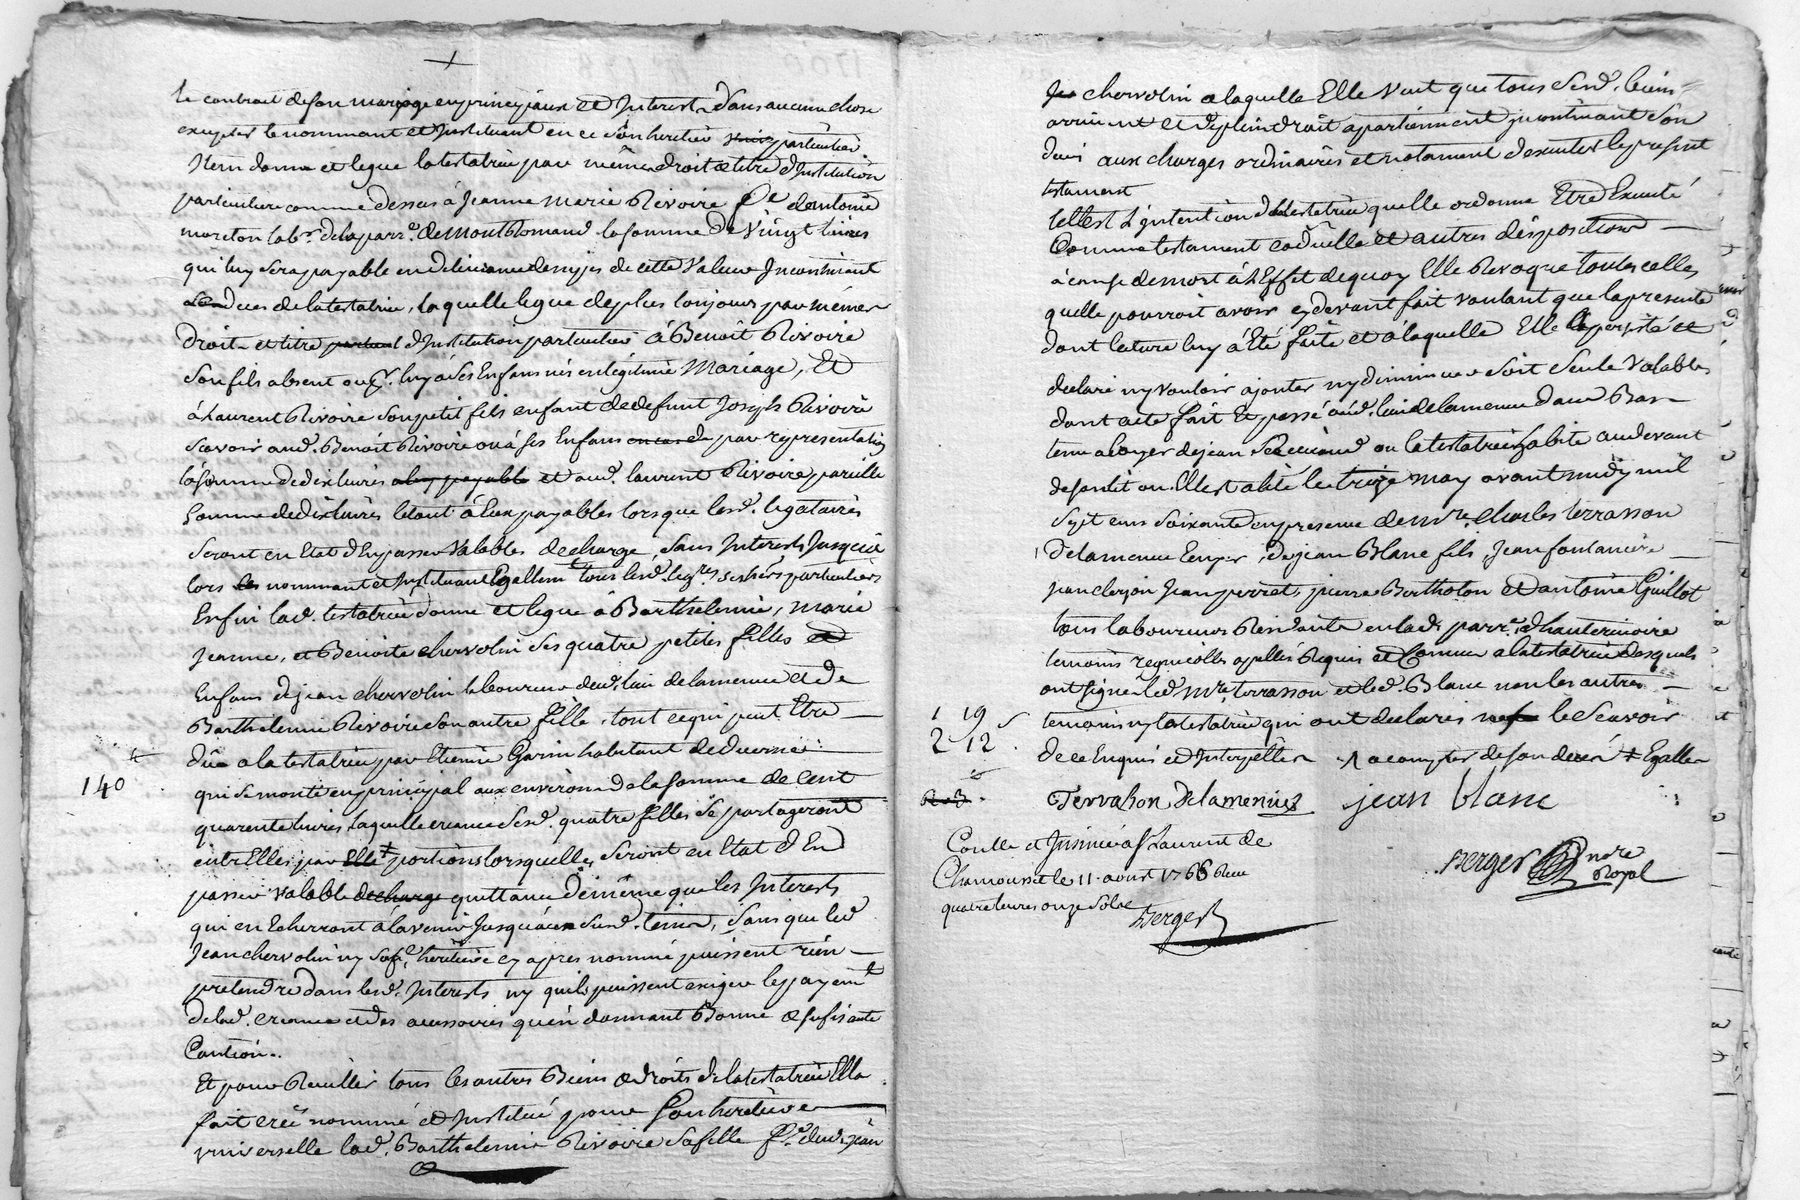 le contrait de son mariage en principaux et Interest Sans aucune chose
excepter le nommant et Instituant en ce Son heritier particulier
Item donne et legue la testatrice par même droit et titre d'Institution
particuliere comme dessus à Jeanne Marie Rivoire fe d'antoine
la parr. de Montromand la Somme De Vingt livres
qui luy Sera payable en de cette Valeur Incontinant
deces de la testatrice, laquelle legue de plus toujours par même
Droit et titre d'Institution particuliere à Benoit Rivoire
Son fils absent ou luy à Ses Enfans nés en légitime Mariage, Et
à Laurent Rivoire Son petit fils enfant de defunt Joseph Rivoire
Scavoir aud. Benoit Rivoire ou à ses Enfans par representation
la Somme de dix livres et aud. laurent Rivoire pareille
Somme de dix livres le tout à Eux payables lorsque lesd. legataires
Seront en Etat d'En passer Valables decharge, Sans Interests Jusqu'a
lors nommant et Instituant Egallemt tous lesd. particuliers
Enfin lad. testatrice donne et legue à Barthelemie, Marie
Jeanne, et Benoite chervolin Ses quatre petites filles
Enfans de jean chervolin laboureur dud. lieu de lamenue et de
Barthelemie Rivoire Son autre fille, tout ce qui peut Etre
dû a la testatrice par Etienne Garin habitant de Duerne
140
qui Se monte en principal aux environs de la Somme de Cent
quarente livres, laquelle creance Sesd. quatre filles Se partageront
entr'Elles par portions lorsquelles Seront en Etat d'En
passer valable quittance De même que les Interests
qui en Echerront à l'avenir Jusqu'aux Susd. tems, Sans que led
Jean chervolin ny Sa fe heritiere cy apres nommé puissent rien
pretendre dans lesd. Interests ny qu'ils puissent exiger le payemt
de lad. creance et des accessoires qu'en donnant Bonne & Sufisante
Caution.
Et pour Recuillir tous les autres Biens & droits de la testatrice Ella
fait crée nommé et Institué pour Son heritiere
universelle lad. Barthelemie Rivoire Sa fille fe dud. jean
chervolin a laquelle Elle Veut que tous Sesd. biens
arrivent et de plein droit apartiennent incontinant Son
deces aux charges ordinaires et notament d'executer le present
testament
telle Est L'intention de la testatrice quelle ordonne Etre Executé
Comme testament codicille et autres dispositions
à cause de mort à L'Effet de quoy Elle Revoque toutes celles
quelle pourroit avoir cy devant fait voulant que la presente
dont lecture luy à Eté faite et à laquelle Elle a persisté et
declaré ny vouloir ajouter ny diminuer Soit Seule Valable
dont acte fait et passé aud. lieu de lamenue dans
tenu a loyer de jean ou la testatrice habite au devant
de Son lit ou Elle Est alité le treize may avant midy mil
Sept cens Soixante en presence de Mre. Charles terrasson
delamenue de jean Blanc fils, Jean fontaniere
jean clerjon Jean perret, pierre Bertholon et antoine Guillot
tous laboureurs Residants en lad. parr. d'hauterivoire
temoins regnicolles apellés Requis et Connus a la testatrice desquels
ont signé led. Mre terrasson et led. Blanc non les autres
temoins ny la testatrice qui ont declarés ne le Scavoir
1 19
2 12
de ce Enquis et Interpellés a compter de son decés + Egalles
Terrasson Delamenue jean blanc
Conllé et Insinué a St Laurent de
Chamousset le 11 aout 1766 Recu
quatre livres onze Sols
Berger
Berger nore
Royal